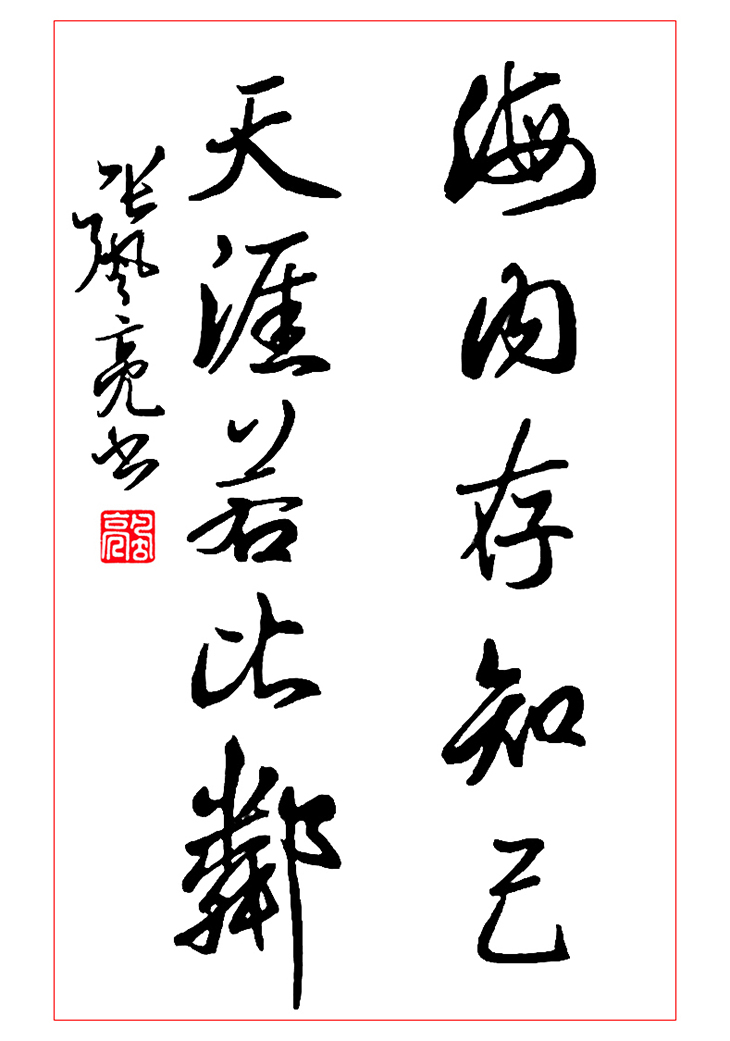 海内存知己
天涯若比鄰
张飚亮书